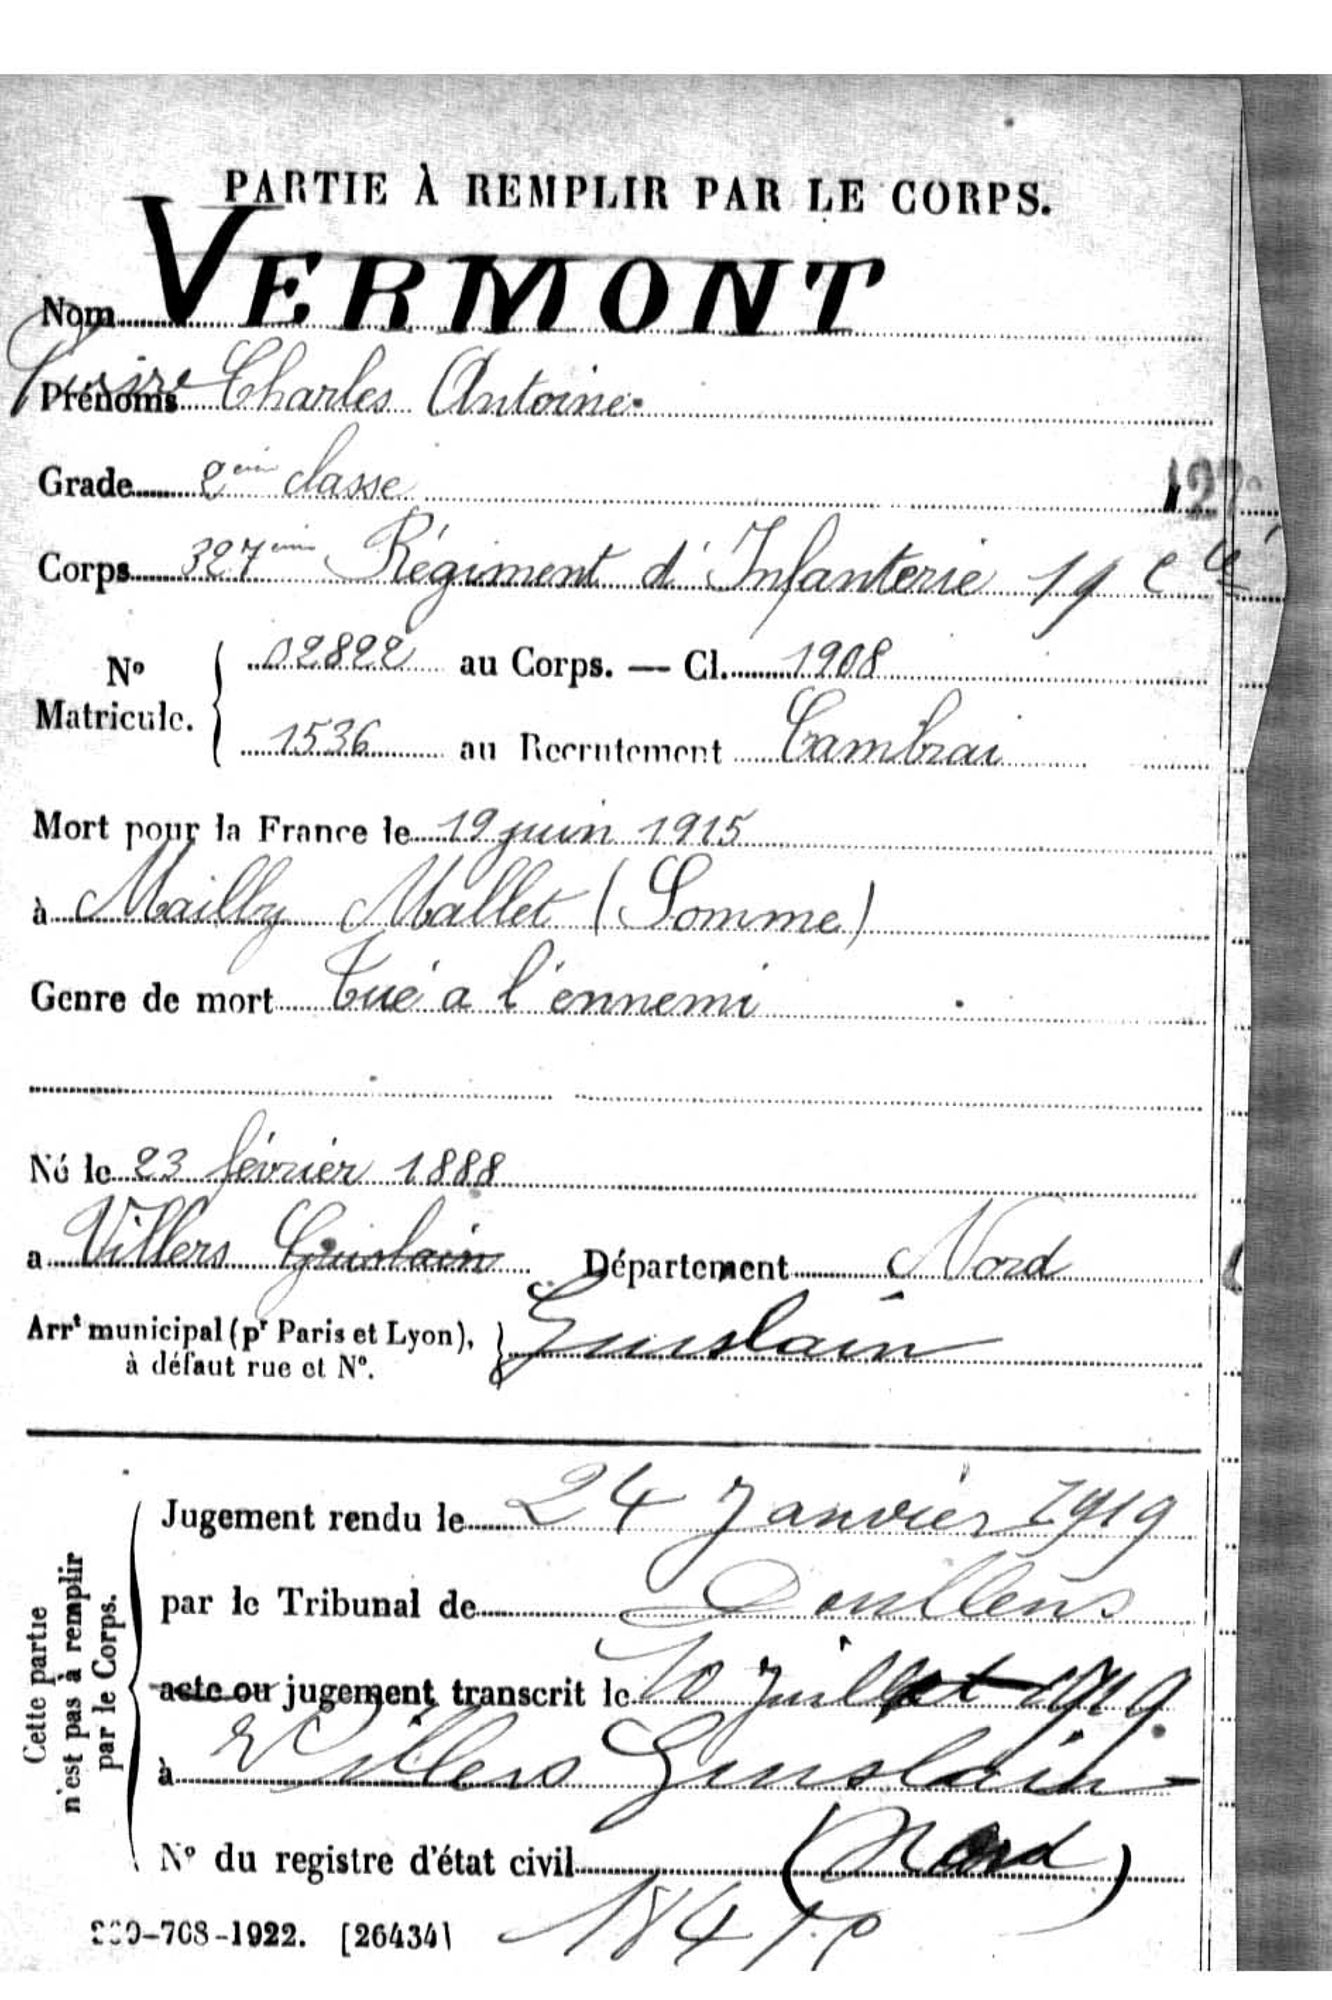 PARTIE À REMPLIR PAR LE CORPS.
Nom VERMONT
Prénoms Charles Antoine
Grade 2ème classe
Corps 327ème Régiment d'Infanterie 19e Cie
No Matricule. 02822 au Corps. — Cl. 1908
1536 au Recrutement Cambrai
Mort pour la France le 19 juin 1915
à Mailly Mallet (Somme)
Genre de mort Tué a l'ennemi
Né le 23 février 1888
a Villers Guislain Département Nord
Arrt municipal (pr Paris et Lyon), à défaut rue et No. Guislain
Cette partie n'est pas à remplir par le Corps.
Jugement rendu le 24 Janvier 1919
par le Tribunal de Doullens
acte ou jugement transcrit le 10 Juillet 1919
à Villers Guislain
No du registre d'état civil (Nord)
-708-1922. [26434]